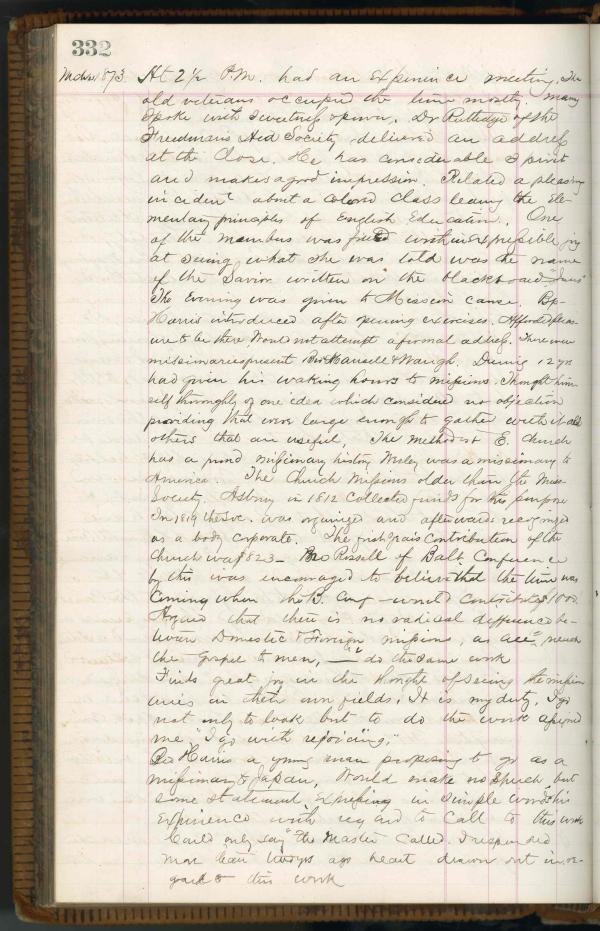 332
1873 At 2 1/2 P.M. had an Experience meeting. The
old veterans occupied the time mostly. Many
Spoke with sweetness & power. Dr Rutledge of the
Freedmans Aid Society delivered an address
at the close. He has considerable Spirit
and makes a good impression. Related a pleasing
incident about a colored class learning the Ele-
mentary principles of English Education. One
of the members was filled with inexpressible joy
at seeing what she was told was the name
of the Savior written on the blackboard "Jesus"
The Evening was given to Mission cause. Bp-
Harris introduced after opening exercises. Afforded pleas-
ure to be there, Would not attempt a formal address. There were
missionaries present Bro Mansell & Waugh. During 12 yrs
had given his waking hours to missions. Thought him-
self thoroughly of one idea which considered no objection
providing that were large enough to gather with it all
others that are useful. The Methodist E. Church
has a proud missionary history Wesley was a missionary to
America. The Church Missions older than the Miss-
Society. Asbury in 1812 Collected funds for this purpose
In 1819 the Soc. was organized and afterwards recognized
as a body corporate. The first contribution of the
Church was 1823— Bro Rossell of Balt. Conference
by this was encouraged to believe that the time was
coming when the B. Conf — would contribute $1000.
Argued that there is no radical difference be-
tween Domestic & Foreign missions, as all preach
the Gospel to men, — do the same work
Finds great joy in the thought of seeing the mission
aries in their own fields. It is my duty, I go
not only to look but to do the work assigned
me, "I go with rejoicing."
Bro Harris a young man proposing to go as a
missionary to Japan, Would make no speech but
some statement, Expressing in simple words his
Experience with regard to Call to this work
Could only say "the Master Called. I responded
more than ago heart drawn out in re-
gard to this work